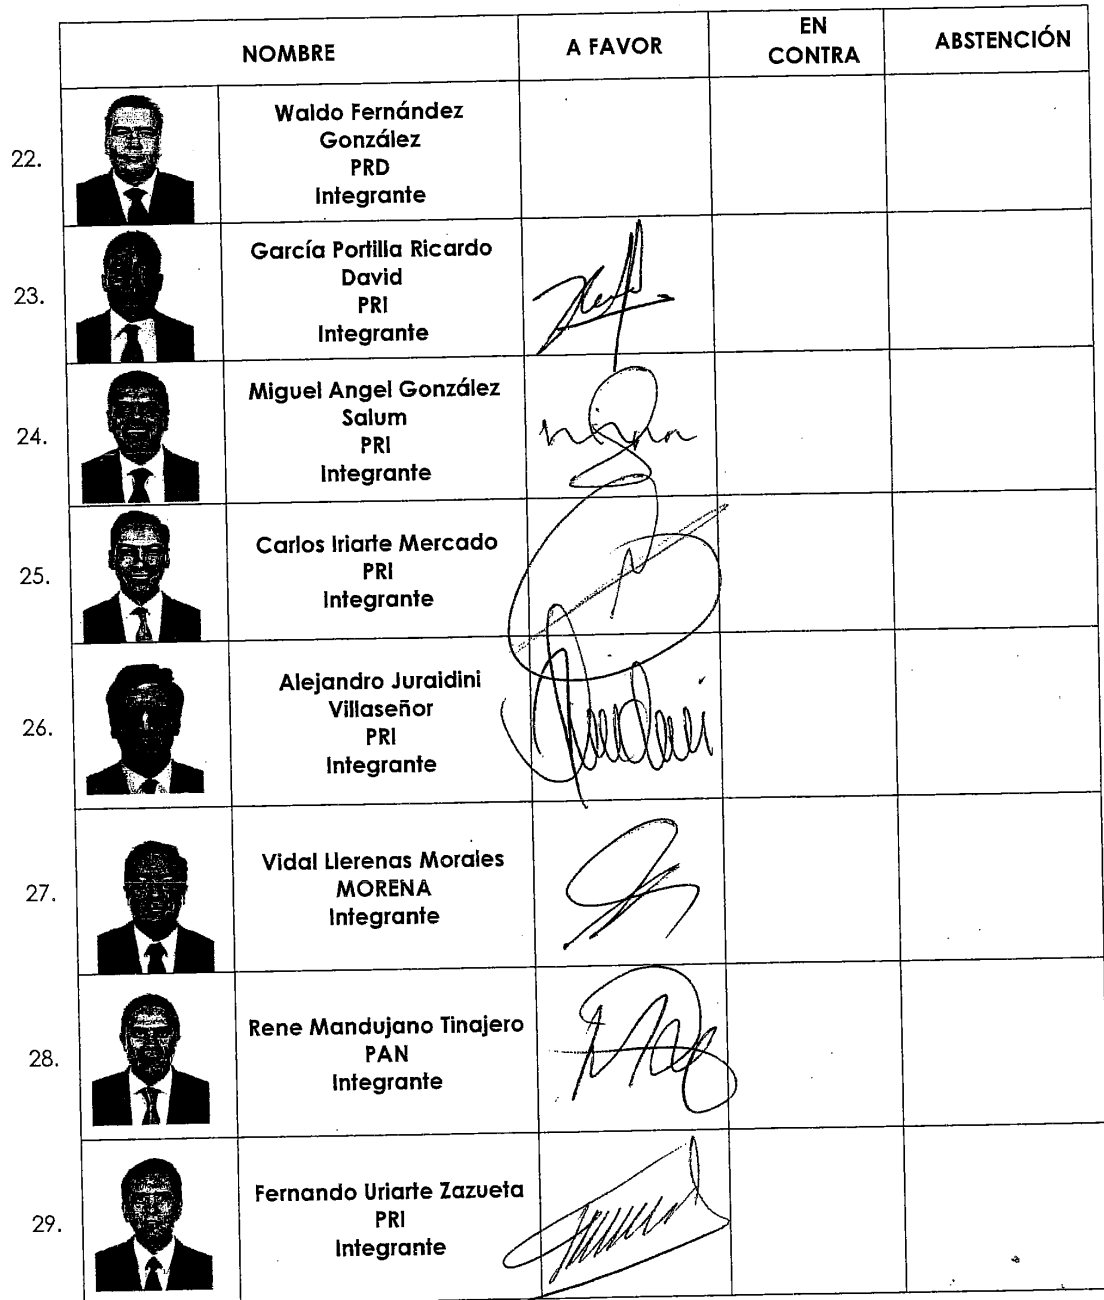 NOMBRE A FAVOR EN CONTRA ABSTENCIÓN
22. Waldo Fernández
González
PRD
Integrante
23. García Portilla Ricardo
David
PRI
Integrante
24. Miguel Angel González
Salum
PRI
Integrante
25. Carlos Iriarte Mercado
PRI
Integrante
26. Alejandro Juraidini
Villaseñor
PRI
Integrante
27. Vidal Llerenas Morales
MORENA
Integrante
28. Rene Mandujano Tinajero
PAN
Integrante
29. Fernando Uriarte Zazueta
PRI
Integrante